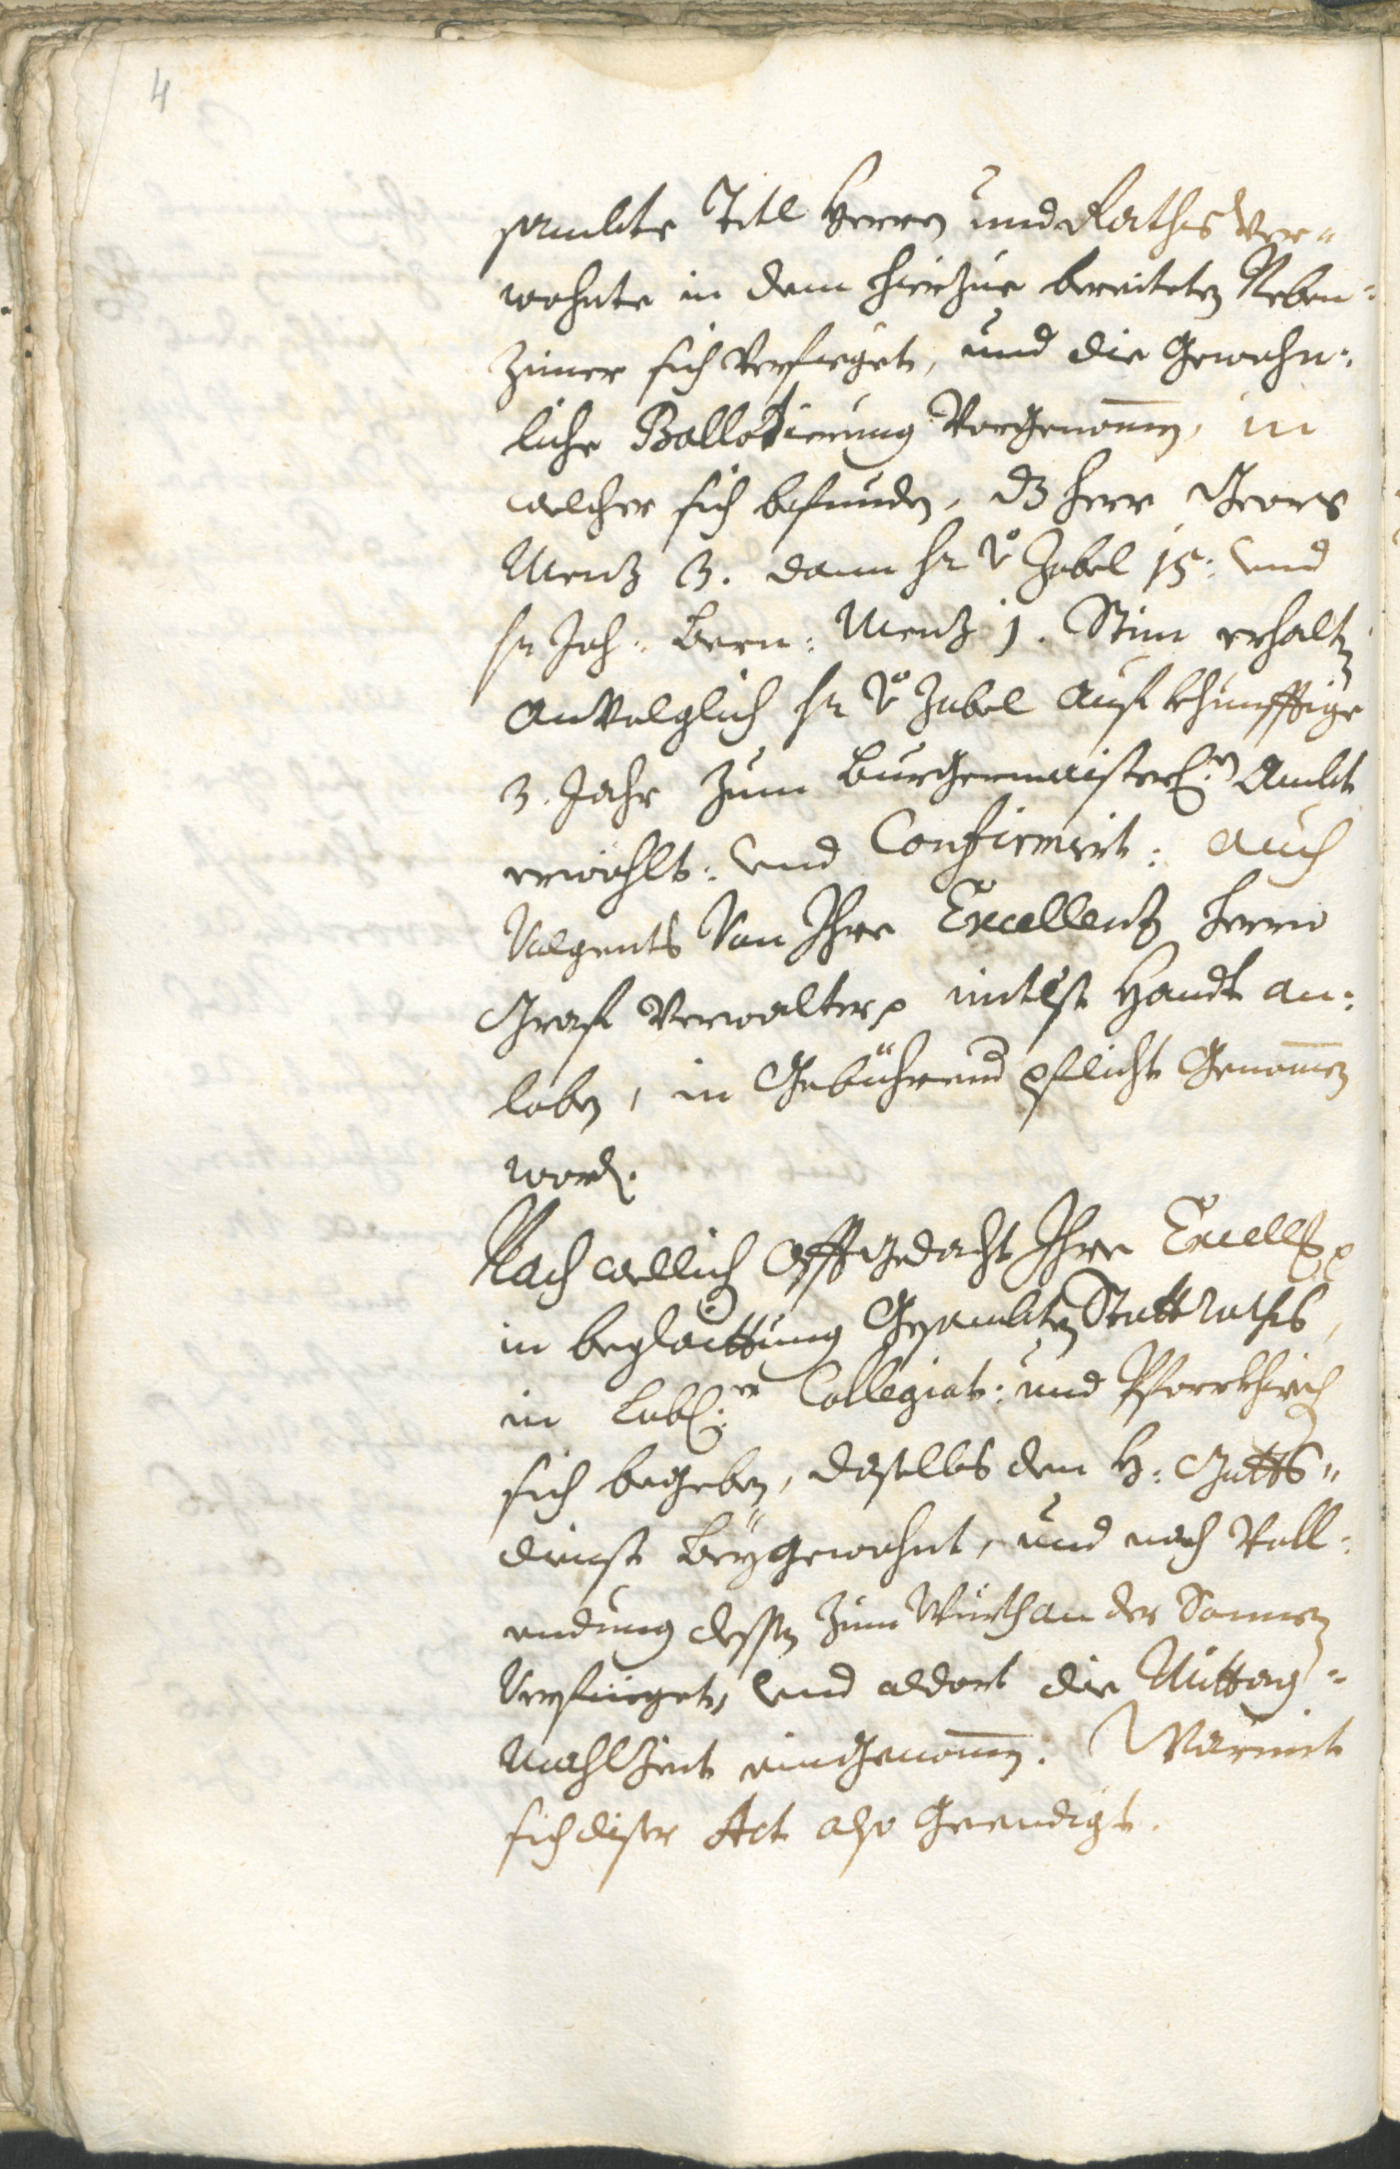 4
sambte Titl Herrn und Rathsver„
wohnte in dem hierzue bereiteten Neben:
Zimer sich verfieget, und die gewohn:
liche Ballotierung vorgenomen, in
welcher sich befunden, dz Herr Georg
Menz 3. dann Hr Vo Zobel 15: und
Hr Joh: Bern: Menz 1. Stim erhalten
anvolglich Hr Vo Zobel auf khünfftige
3. Jahr zum Burgermaisterl:en Ambt
erwöhlt: und Confirmirt: auch
volgents von Ihro Excellenz Herrn
Graf Verwalter mitelst Handt an:
loben, in gebührend pflicht genomen
word.
Nach wellich offtgedacht Ihro Excell
in beglaittung gesambten Stattraths,
in Lobl:er Collegiat: und Pfarrkhirch
sich begeben, daselbs dem H: Gotts„
dienst beygewohnt, und nach voll:
endung dessen zum Würth an der Sonnen
verfieget, und aldort die Mittag=
Mahlzeit eingenomen. Warmit
sich diser Act also geendigt.